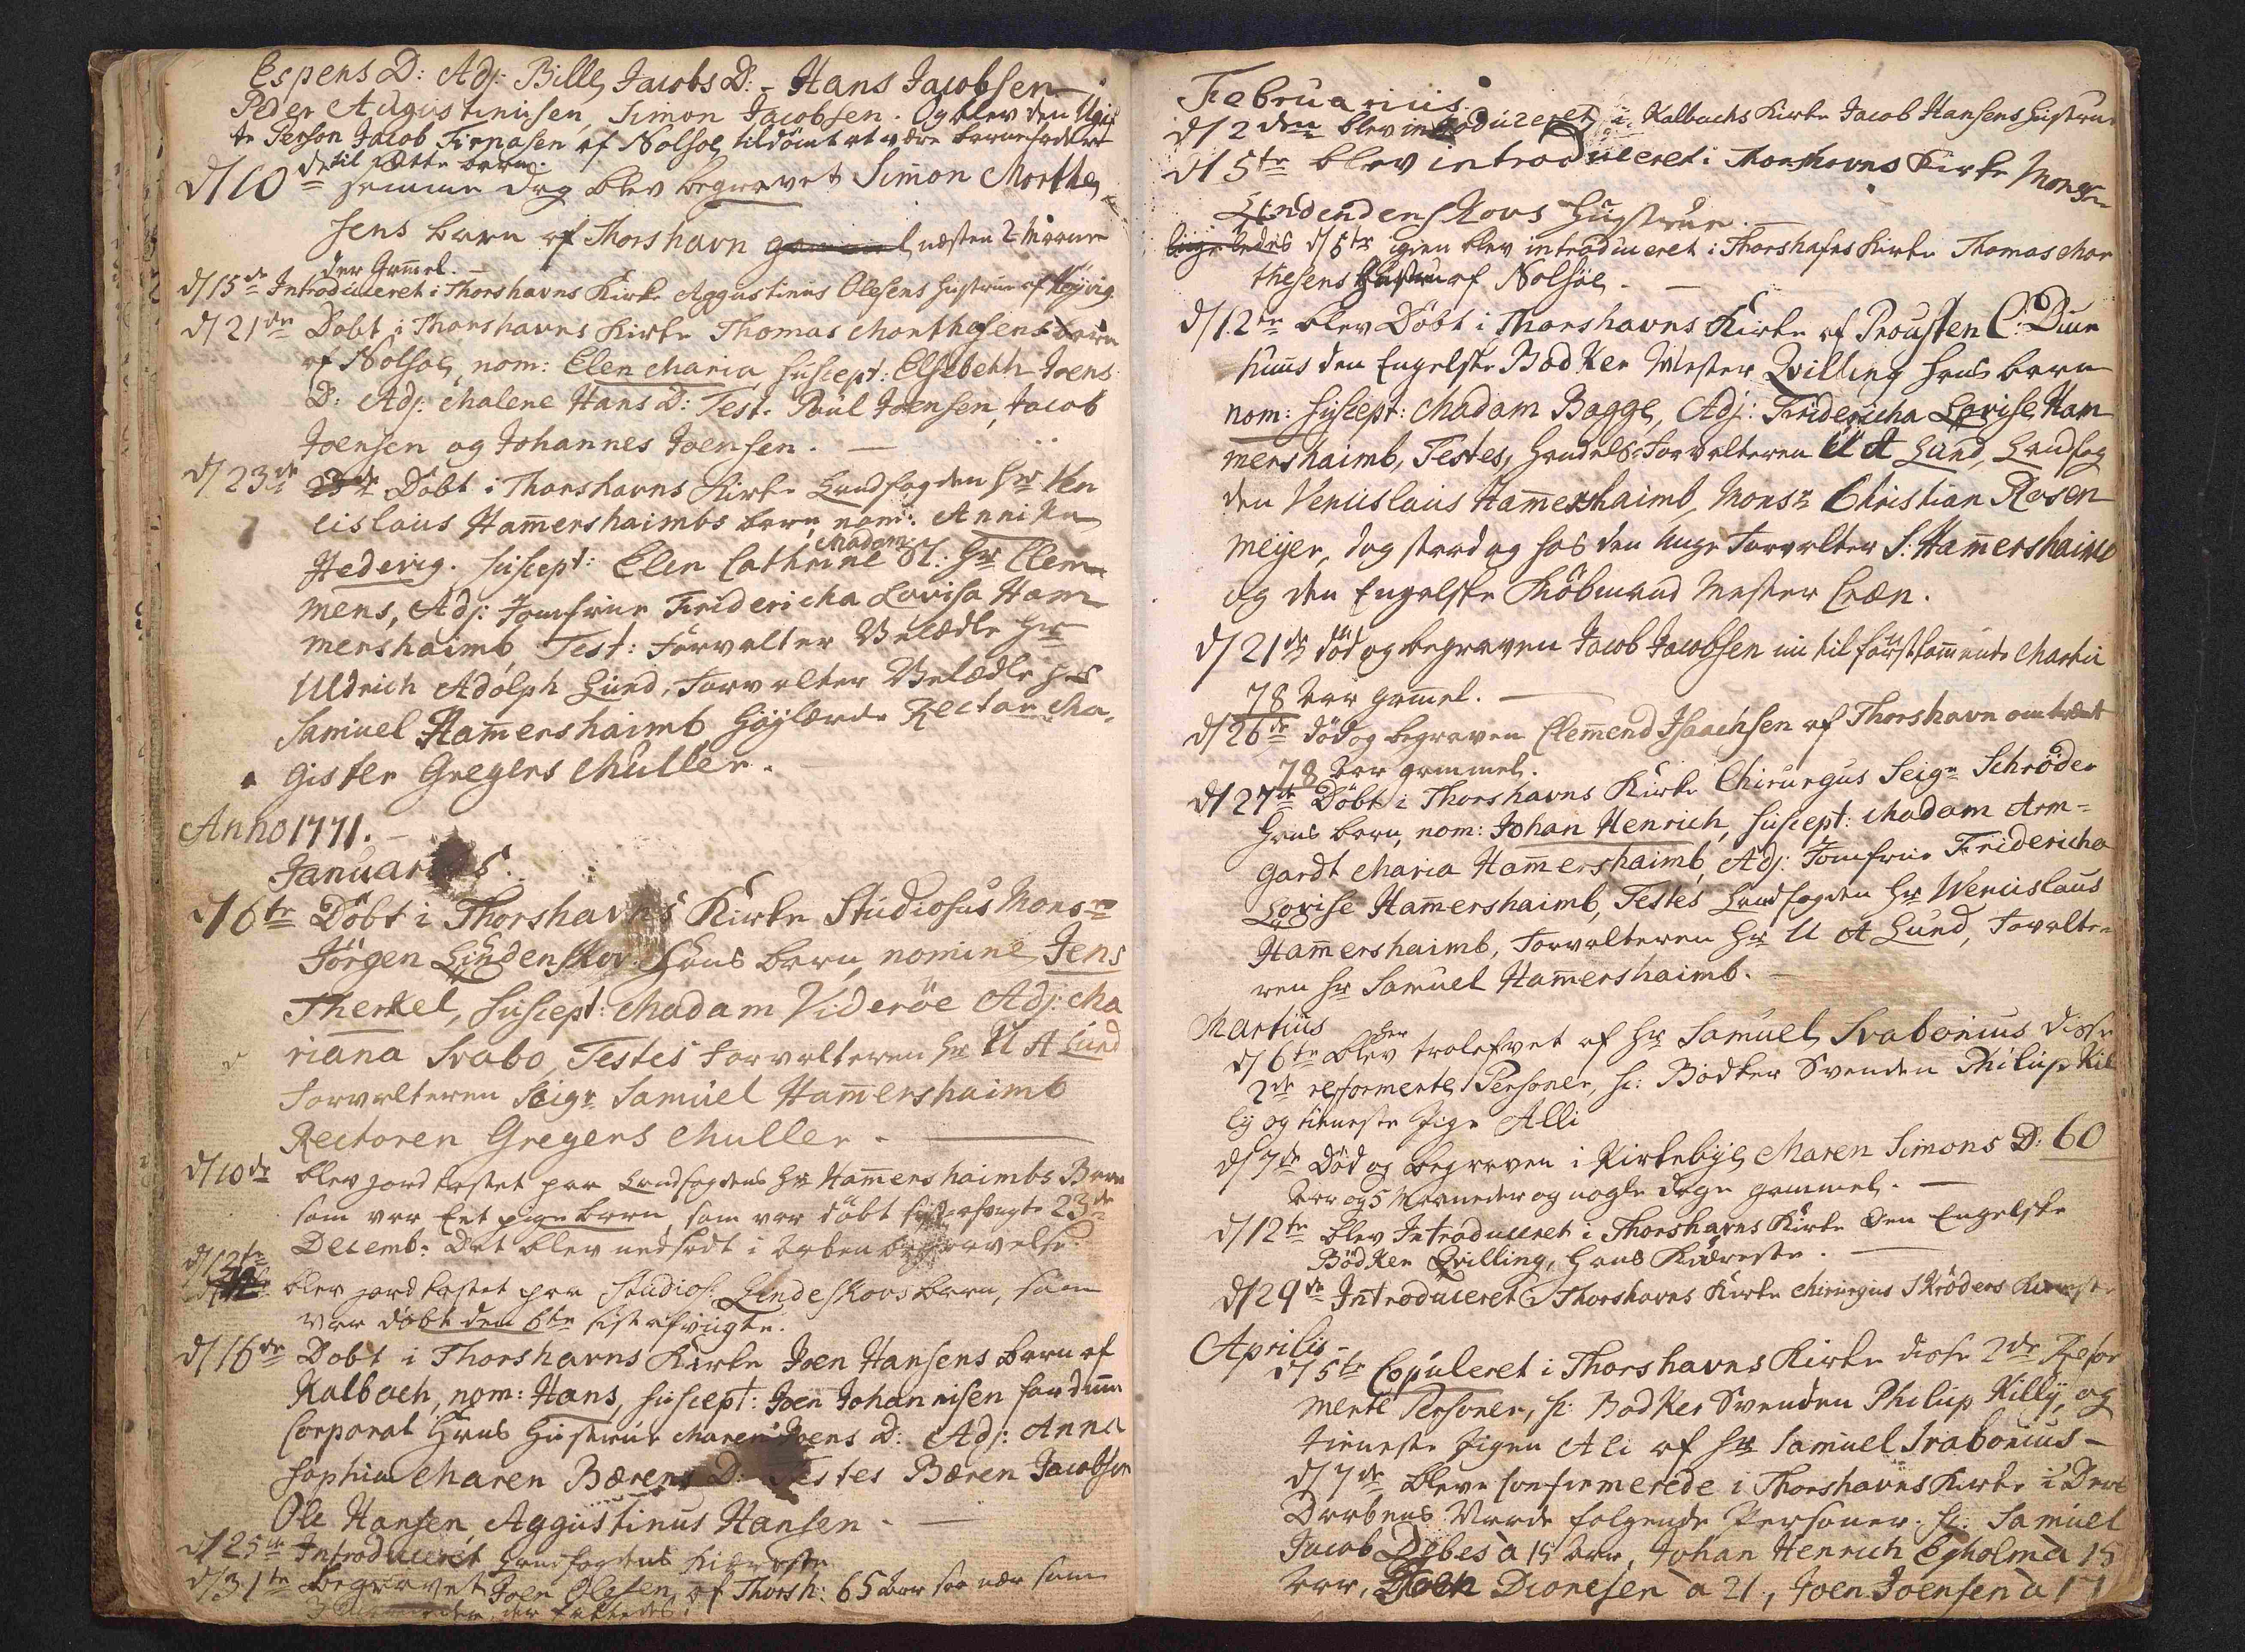 Espens D: Adj: Bille Jacobs D: - Hans Jacobsen
Peder Augustinusen, Simon Jacobsen. Og blev den Ugif
te Person Jacob af Nolsöe tildömt at være barnefader
til dette barn.
d/10de samme dag blev begravet Simon Morthe
sens barn af Thorshavn gammel næsten 2 Maane
der Gaml.
d/15de Introduceret i Thorshavns Kirke Aggustinus Olesens Hustrue af Höjvig
d/21de Döbt i Thorshavns Kirke Thomas Morthesens barn
af Nolsöe, nom: Elen Maria suscept: Elsebeth Joens
D: Adj: Malene Hans D: Test. Poul Joensen, Jacob
Joensen og Johannes Joensen. —
d/23de 23de Döbt i Thorshavns Kirke Landfogden Hr Ven
cislaus Hamershaimbs barn nom: Annika
Hedevig. suscept: Elen Cathrine Madam Sl. Hr Clem
mens, Adj: Jomfrue Fridericha Lovisa Ham
mershaimb, Test: Forvalter Velædle Hr
Uldrich Adolph Lund, Forvalter Velædle Hr
Samuel Hamershaimb Höjlærde Rector Ma
gister Gregers Muller.
Anno 1771. —
Januarius.
d/6te Döbt i Thorshavns Kirke Studiosus Monsr
Jörgen Lindenskov Hans barn, nomine Jens
Therkel, suscept: Madam Videröe Adj: Ma
riana Svabo, Testes Forvalteren Hr U A Lund
Forvalteren Seigr Samuel Hamershaimb
Rectoren Gregers Muller. —
d/10de blev jordkastet paa Landfogdens Hr Hamershaimbs Barn
som var Eet pigebarn, som var döbt sidst afvigte 23de
Decemb: Det blev nedsadt i Aaben begravelse.
d/12te blev jordkastet paa Studios: Lindeskovs barn, som
var döbt den 6te sist afvigte.
d/16de Döbt i Thorshavns Kirke Joen Hansens barn af
Kalbach, nom: Hans, suscept: Joen Johannisen fordum
Corporal Hans Hustrue Maren Joens D: Adj: Anna
Sophia Maren Bærens D: Testes Bæren Jacobsen
Ole Hansen Aggustinus Hansen. —
d/25de Introduceret Landfogdens Kiæreste
d/31te Begravet Joen Olesen af Thorsh: 65 Aar saa nær som
3 Maaneder, der fattedes
Februarius.
d/2den blev introduceret i Kalbachs Kirke Jacob Hansens Hustrue
d/5te blev introduceret i Thorshavns Kirke Monsr
Lindendenskovs Hustrue. —
ligeledes d/5te igien blev introduceret i Thorshafns Kirke Thomas Mor
thesens Hustru af Nolsöe. —
d/12te blev Döbt i Thorshavns Kirke af Prousten C: Diur
huus den Engelske Bödker Mester Qvilling hans barn
nom: suscept: Madam Bagge, Adj: Fridericha Lovise Ham
mershaimb, Testes, Handels-Forvalteren U A Lund, Landfog
den Venciislaus Hamershaimb, Monsr Christian Rosen
meyer, dog stod og hos den unge Forvalter S: Hamershaimb
og den Engelske Kiöbmand Mester Cræn.
d/21de död og begraven Jacob Jacobsen nu til förstkommende Martii
78 Aar gamel. —
d/26de död og begraven Clemend Isaachsen af Thorshavn omtrent
78 Aar gammel.
d/27de Döbt i Thorshavns Kirke Chirurgus Seigr Schröder
Hans barn, nom: Johan Henrich, suscept: Madam Arm-
gardt Maria Hamershaimb, Adj: Jomfrue Fridericha
Lovise Hamershaimb, Testes Landfogden Hr Wenciislaus
Hamershaimb, Forvalteren Hr U A Lund, Forvalte-
ren Hr Samuel Hamershaimb. —
Martius
d/6te blev her trolofvet af Hr Samuel Svabonius disse
2de reformerte Personer, sc: Bödker Svenden Philip Kil
ly og tieneste Pige Alli
d/7de Död og begraven i Kirkebye Maren Simons D: 60
Aar og 5 Maaneder og nogle dage gammel. —
d/12te blev Introduceret i Thorshavns Kirke den Engelske
Bödker Qvilling, Hans Kiæreste. —
d/29de Introduceret i Thorshavns Kirke Chirurgus Skröders Kiæreste
Aprilis -
d/5te Copuleret i Thorshavns Kirke disse 2de Refor
merte Personer, sc: Bödker Svenden Philip Killy, og
tieneste Pigen Ali af Hr Samuel Svabonius -
d/7de bleve confirmerede i Thorshavns Kirke i
Daabens Naade fölgende Personer. sc: Samuel
Jacob Debes à 15 Aar, Johan Henrich Egholm à 15
Aar, Joen Dionesen à 21, Joen Joensen à 17